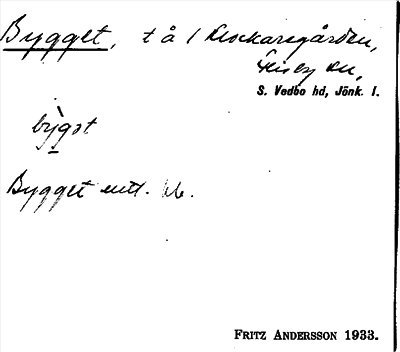 Bygget, t å 1 Klockaregården,
Flisby sn,
S. Vedbo hd, Jönk. l.
bỳgət
Bygget enl. bb.
FRITZ ANDERSSON 1933.